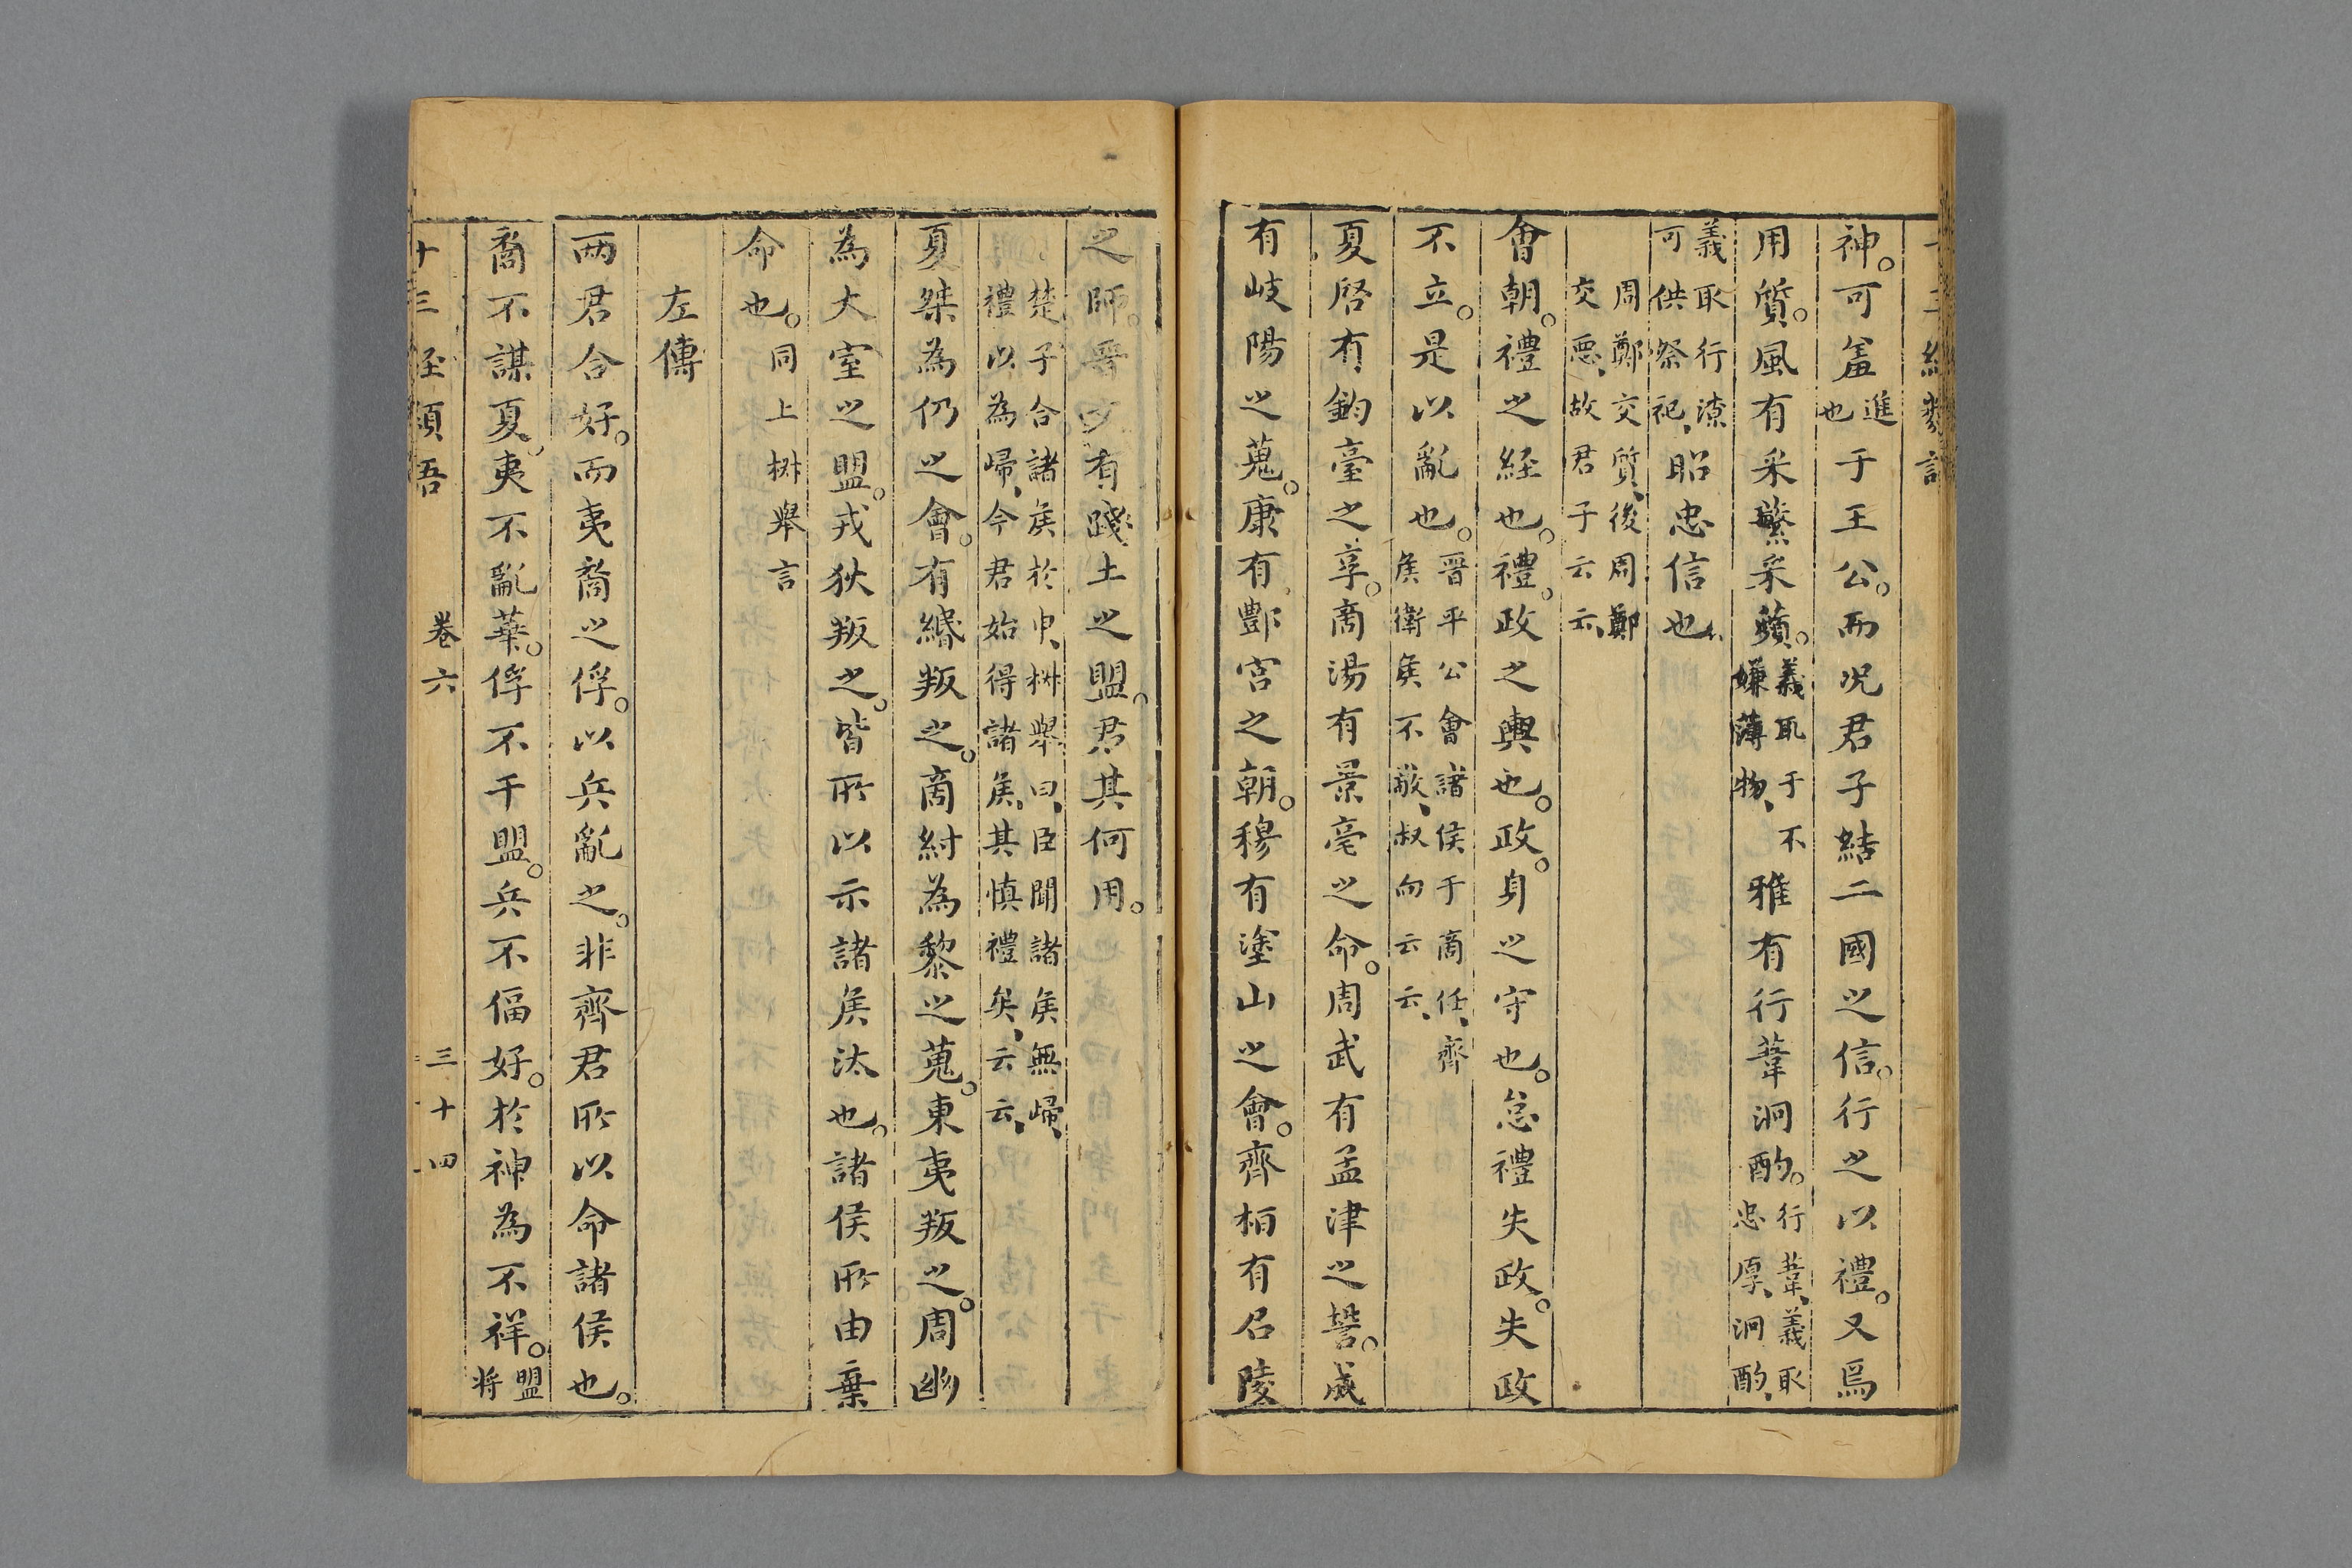 神。可羞進也于王公。而况君子結二國之信。行之以禮。又焉
用質。風有采蘩采蘋。義取于不嫌薄物、雅有行葦泂酌。行葦、義取忠厚、泂酌、
義取行潦可供祭祀、昭忠信也、
周鄭交質、後周鄭交惡、故君子云云、
會朝。禮之経也。禮。政之輿也。政。身之守也。怠禮失政。失政
不立。是以亂也。晋平公會諸侯于商任、齊矦衛矦不敬、叔向云云、
夏啓有鈞臺之享。商湯有景亳之命。周武有孟津之誓。成
有岐陽之蒐。康有酆宮之朝。穆有塗山之會。齊桓有召陵
之師。晋文有踐土之盟。君其何用。
楚子合諸矦於申、椒舉曰、臣聞諸矦無歸、禮以為歸、今君始得諸矦、其慎禮矣、云云、
夏桀為仍之會。有緡叛之。商紂為黎之蒐。東夷叛之。周幽
為大室之盟。戎狄叛之。皆所以示諸矦汰也。諸侯所由棄
命也。同上椒舉言
左傳
兩君合好。而夷裔之俘。以兵亂之。非齊君所以命諸侯也。
裔不謀夏。夷不亂華。俘不干盟。兵不偪好。於神為不祥。盟將
十三経類語 卷六 三十四